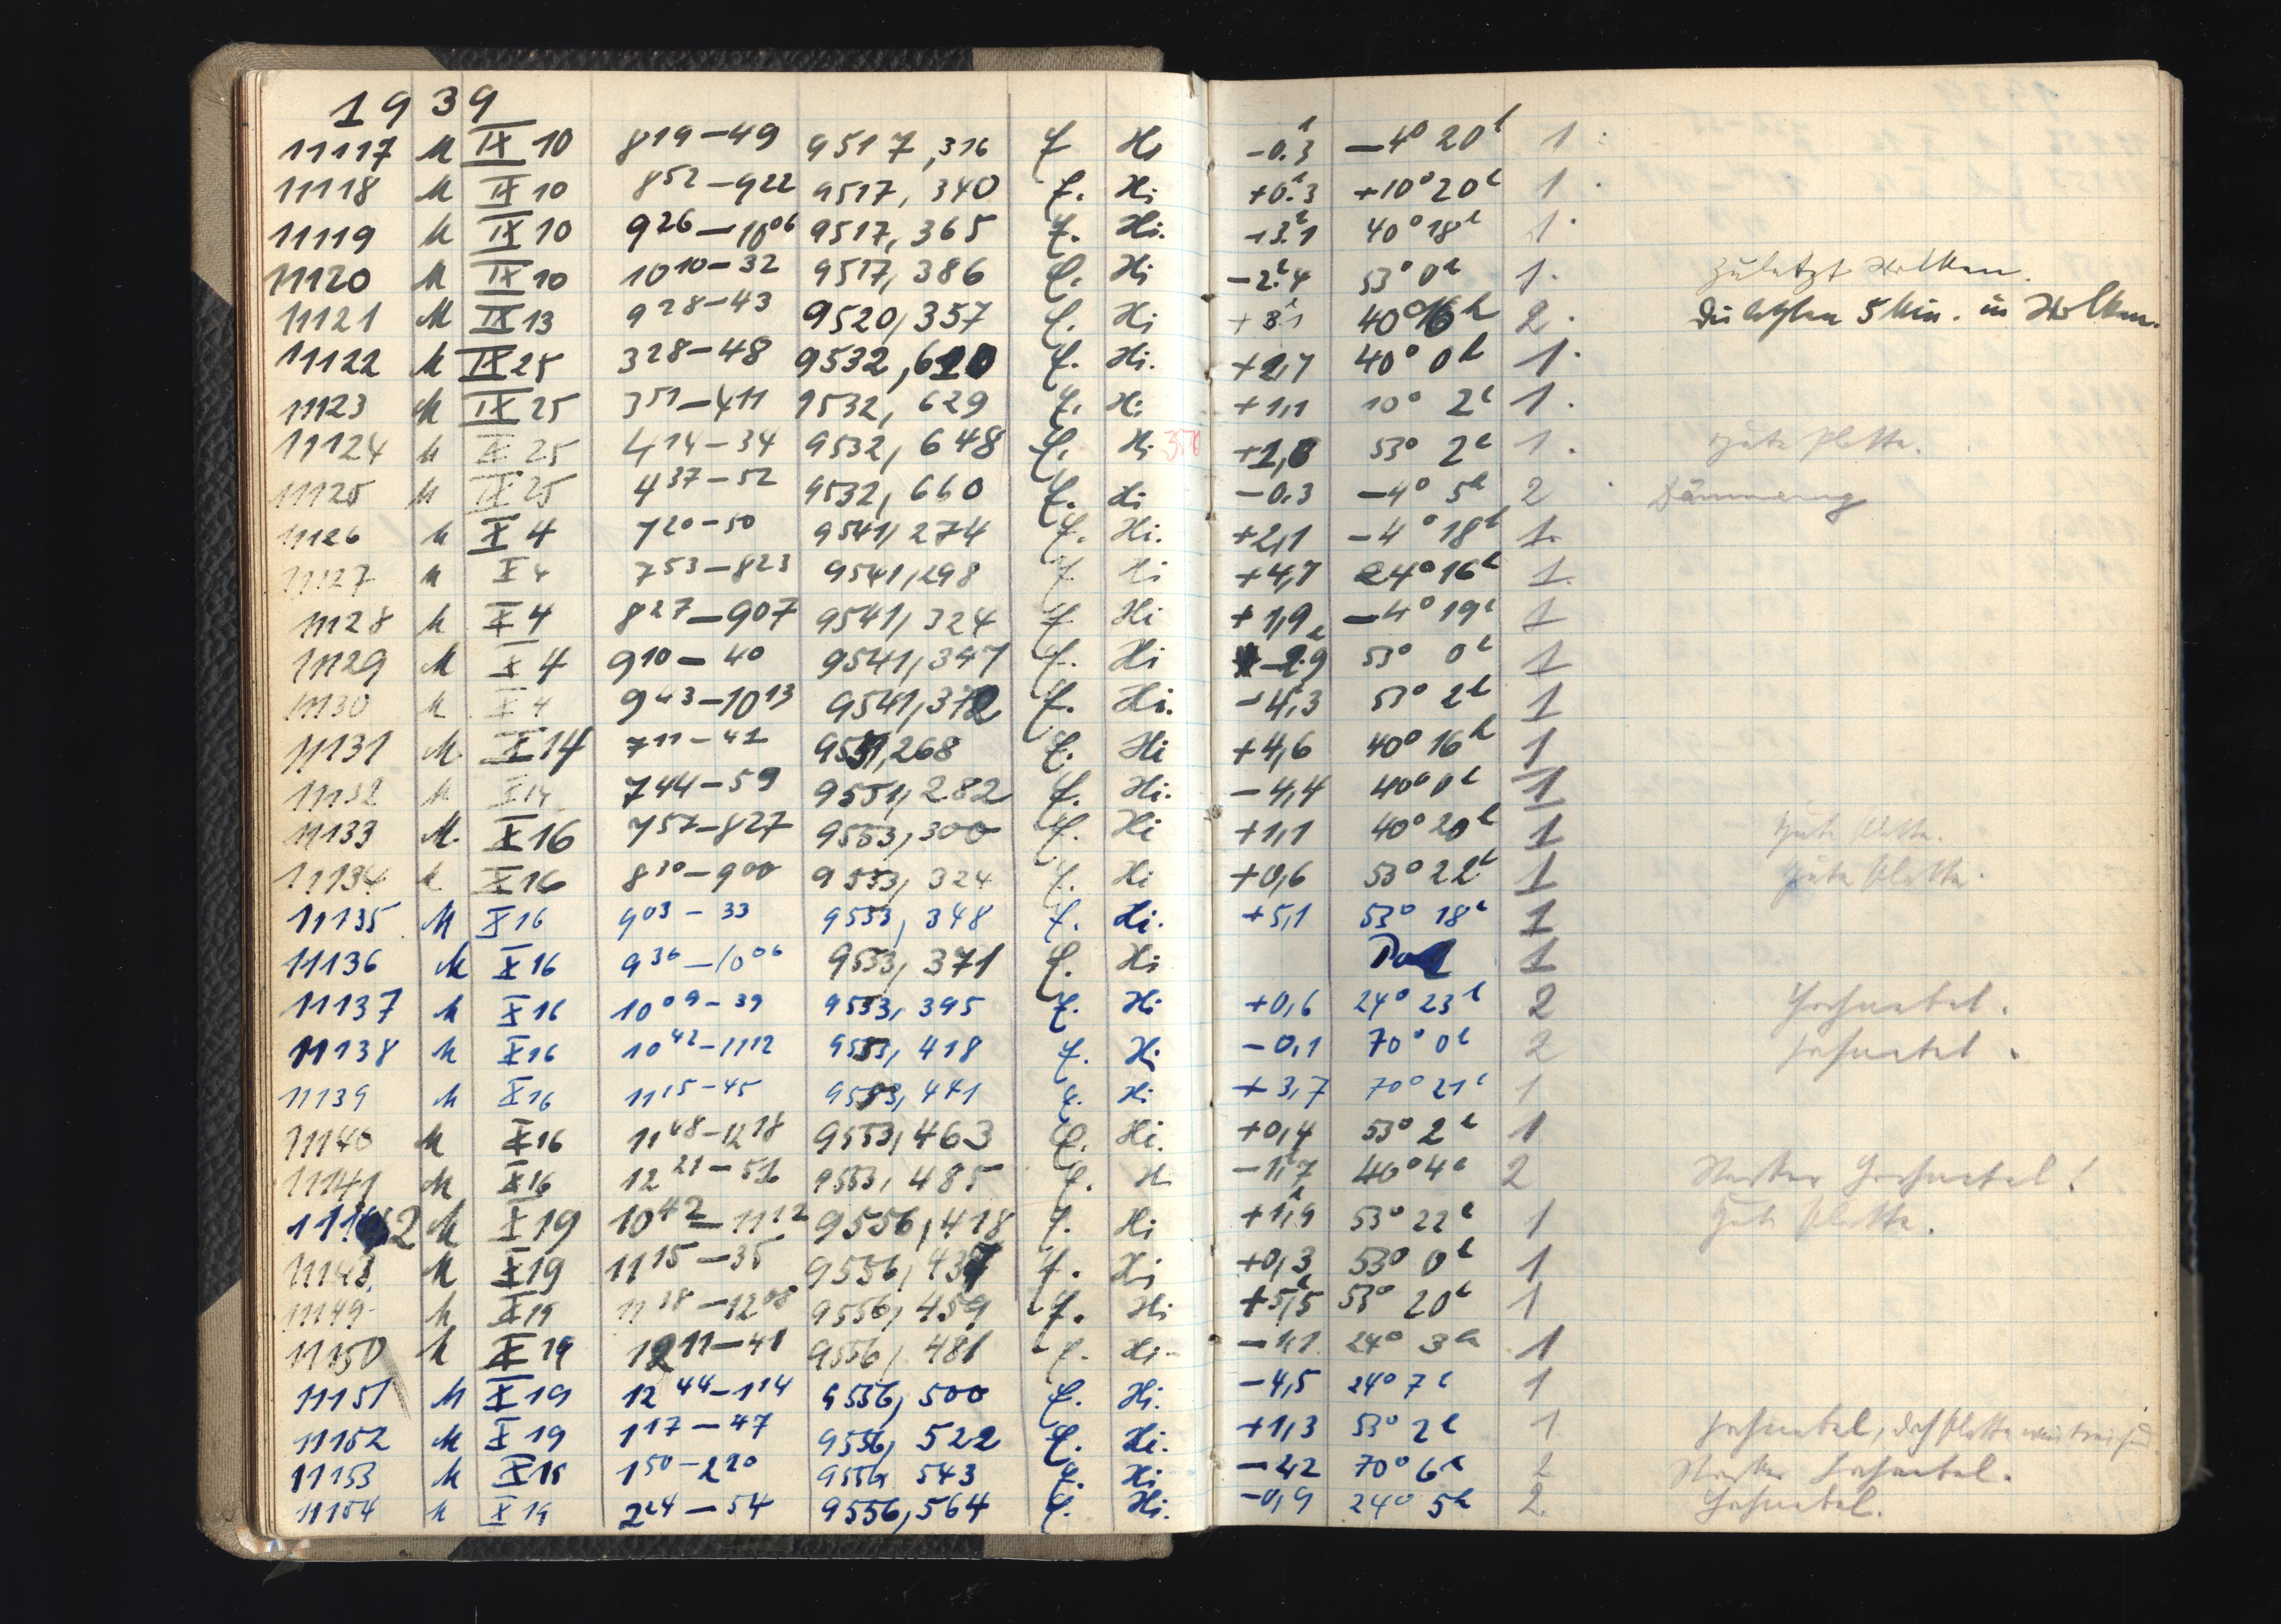 1939
11117 M IX 10 8 19 – 49 9517,316 f Hi -0.3 -4° 20h 1
11118 M IX 10 8 52 – 9 22 9517,340 f. Hi +0.3 +10° 20h 1
11119 M IX 10 9 26 – 10 06 9517,365 f. Hi. 40° 18h 1
11120 M IX 10 10 10 – 32 9517,386 f. Hi -2.4 53° 0h 1. zuletzt Wolken.
11121 M IX 13 9 28 – 43 9520,357 f. Hi 40° 16h 2. Die letzten 5 Min. in Wolken.
11122 M IX 25 3 28 – 48 9532,610 f. Hi. +2,7 40° 0h 1.
11123 M IX 25 3 51 – 4 11 9532,629 f. Hi +1,1 10° 2h 1.
11124 M IX 25 4 14 – 34 9532,648 f. Hi 53° 2h 1. Gute Platte.
11125 M IX 25 4 37 – 52 9532,660 f. Hi -0.3 -4° 5h 2 Dämmerung
11126 M X 4 7 20 – 50 9541,274 f. Hi. +2,1 -4° 18h 1.
11127 M X 4 7 53 – 8 23 9541,298 f Hi +4,7 24° 16h 1.
11128 M X 4 8 27 – 9 07 9541,324 f. Hi +1,9 -4° 19h 1
11129 M X 4 9 10 – 40 9541,347 f. Hi -2.9 53° 0h 1
11130 M X 4 9 43 – 10 13 9541,372 f. Hi. -4,3 53° 2h 1
11131 M. X 14 7 11 – 41 9551,268 f. Hi +4,6 40° 16h 1
11132 M X 14 7 44 – 59 9551,282 f. Hi. -4,4 40° 0h 1
11133 M. X 16 7 57 – 8 27 9553,300 f. Hi +1,1 40° 20h 1 Gute Platte.
11134 M X 16 8 30 – 9 00 9553,324 f. Hi +0,6 53° 22h 1 Gute Platte.
11135 M X 16 9 03 – 33 9553,348 f. Hi. +5,1 53° 18h 1
11136 M X 16 9 36 – 10 06 9553,371 f. Hi Pol 1
11137 M X 16 10 09 – 39 9553,395 f. Hi +0,6 24° 23h 2 Hochnebel.
11138 M X 16 10 42 – 11 12 9553,418 f. Hi -0,1 70° 0h 2 Hochnebel.
11139 M X 16 11 15 – 45 9553,441 f. Hi +3,7 70° 21h 1
11140 M X 16 11 48 – 12 18 9553,463 f. Hi. +0,4 53° 2h 1
11141 M X 16 12 21 – 51 9553,485 f. Hi -1,7 40° 4h 2 Starker Hochnebel!
11142 M X 19 10 42 – 11 12 9556,418 f. Hi +1,9 53° 22h 1 Gute Platte.
11143 M X 19 11 15 – 35 9556,437 f. Hi +0,3 53° 0h 1
11149 M X 19 11 38 – 12 08 9556,459 f. Hi +5,5 53° 20h 1
11150 M X 19 12 11 – 41 9556,481 f. Hi -1,1 24° 3h 1
11151 M X 19 12 44 – 1 14 9556,500 f. Hi. -4,5 24° 7h 1
11152 M X 19 1 17 – 47 9556,522 f. Hi. +1,3 53° 2h 1. Hochnebel, doch Platte
11153 M X 19 1 50 – 2 20 9556,543 f. Hi 70° 6h 2 Starker Hochnebel.
11154 M X 19 2 24 – 54 9556,564 f. Hi. -0,9 24° 5h 2. Hochnebel.